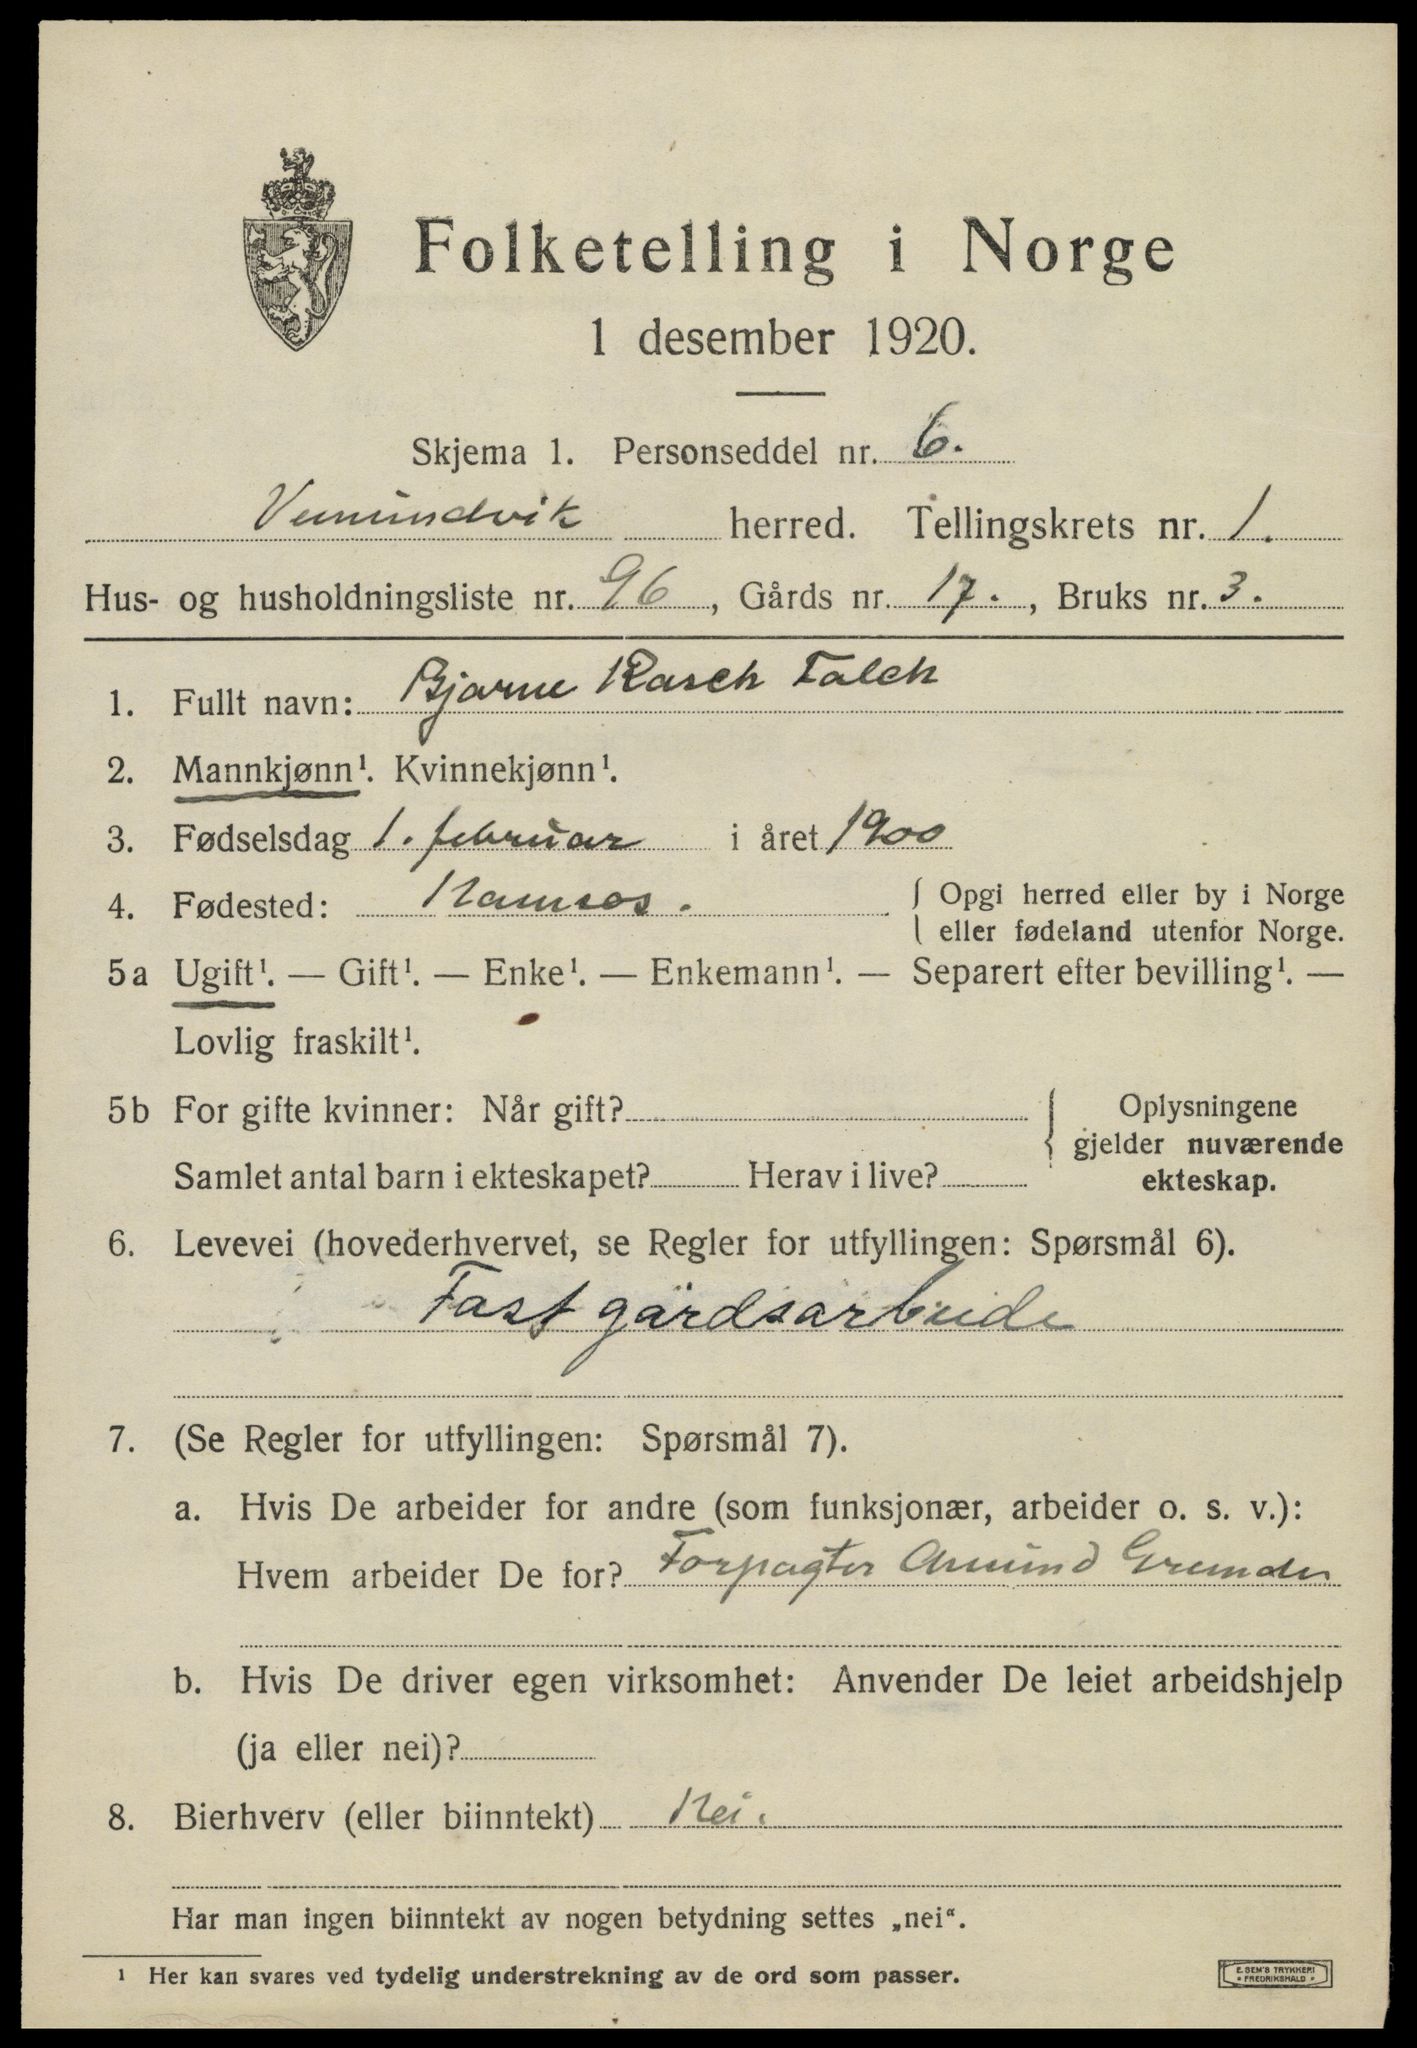 Folketelling i Norge
1 desember 1920.
Skjema 1. Personseddel nr. 6.
Vemundvik herred. Tellingskrets nr. 1.
Hus- og husholdningsliste nr. 96, Gårds nr. 17., Bruks nr. 3.
1. Fullt navn: Bjarne Rasch Falch
2. Mannkjønn¹. Kvinnekjønn¹.
3. Fødselsdag 1. februar i året 1900
4. Fødested: Namsos. { Opgi herred eller by i Norge
eller fødeland utenfor Norge.
5a Ugift¹. — Gift¹. — Enke¹. — Enkemann¹. — Separert efter bevilling¹. —
Lovlig fraskilt¹.
5b For gifte kvinner: Når gift? { Oplysningene
gjelder nuværende
Samlet antal barn i ekteskapet? Herav i live? ekteskap.
6. Levevei (hovederhvervet, se Regler for utfyllingen: Spørsmål 6).
Fast gårdsarbeide
7. (Se Regler for utfyllingen: Spørsmål 7).
a. Hvis De arbeider for andre (som funksjonær, arbeider o. s. v.):
Hvem arbeider De for? Forpagter Amund
b. Hvis De driver egen virksomhet: Anvender De leiet arbeidshjelp
(ja eller nei)?
8. Bierhverv (eller biinntekt) Nei.
Har man ingen biinntekt av nogen betydning settes „nei“.
¹ Her kan svares ved tydelig understrekning av de ord som passer.
E. SEM'S TRYKKERI
• FREDRIKSHALD •